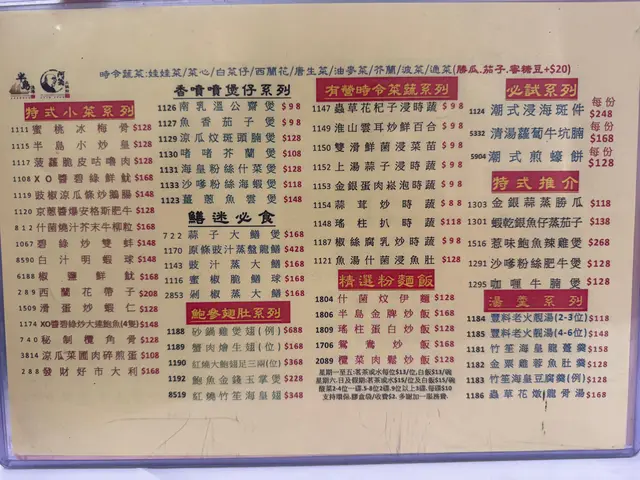 時令蔬菜:娃娃菜/菜心/白菜仔/西蘭花/唐生菜/油麥菜/芥蘭/菠菜/通菜(勝瓜.茄子.蜜糖豆+$20)
特式小菜系列
1111 蜜桃冰梅骨 $128
1115 半島小炒皇 $128
1117 菠蘿脆皮咕嚕肉 $128
1108 XO醬碧綠鮮魷 $168
1119 豉椒涼瓜條炒鵝腸 $148
1120 京蔥醬爆安格斯肥牛 $128
812 什菌燒汁芥末牛柳粒 $168
1067 碧綠炒雙蚌 $148
8590 白汁明蝦球 $148
6188 椒鹽鮮魷 $168
289 西蘭花帶子 $208
1509 滑蛋炒蝦仁 $128
1174 XO醬碧綠炒大連鮑魚(4隻) $148
740 秘制欖角骨 $128
3814 涼瓜菜圃肉碎煎蛋 $108
288 發財好市大利 $168
香噴噴煲仔系列
1126 南乳溫公齋煲 $98
1127 魚香茄子煲 $98
1129 涼瓜炆斑頭腩煲 $128
1130 啫啫芥蘭煲 $108
1131 海皇粉絲什菜煲 $128
1133 沙嗲粉絲海蝦煲 $118
1123 薑蔥魚雲煲 $148
鱔迷必食
722 蒜子大鱔煲 $168
1170 原條豉汁蒸盤龍鱔 $428
1143 豉汁蒸大鱔 $168
1116 蜜椒脆鱔球 $168
2853 剁椒蒸大鱔 $168
鮑參翅肚系列
1188 砂鍋雞煲翅(例) $688
1189 蟹肉燴生翅(位) $168
1190 紅燒大鮑翅足三兩(位) $368
1192 鮑魚金錢玉掌煲 $228
8519 紅燒竹笙海皇翅 $348
有營時令菜蔬系列
1147 蟲草花杞子浸時蔬 $98
1149 淮山雲耳炒鮮百合 $98
1150 雙滑鮮菌浸菜苗 $98
1152 上湯蒜子浸時蔬 $98
1153 金銀蛋肉崧泡時蔬 $98
1154 蒜茸炒時蔬 $88
1148 瑤柱扒時蔬 $118
1187 椒絲腐乳炒時蔬 $98
1121 魚湯什菌浸魚肚 $128
精選粉麵飯
1804 什菌炆伊麵 $128
1806 半島金牌炒飯 $168
1809 瑤柱蛋白炒飯 $128
1706 鴛鴦炒飯 $168
2089 欖菜肉鬆炒飯 $128
星期一至五:茗茶或水每位$13/位,白飯$13/碗
星期六.日及假期:茗茶或水$15/位及白飯$15/碗
支持環保,膠盒袋/收費$2. 多謝加一服務費.
必試系列
1124 潮式浸海斑件 每份$248
5332 清湯蘿蔔牛坑腩 每份$168
5904 潮式煎蠔餅 每份$128
特式推介
1303 金銀蒜蒸勝瓜 $118
1301 蝦乾銀魚仔蒸茄子 $138
1516 惹味鮑魚辣雞煲 $268
1291 沙嗲粉絲肥牛煲 $128
1295 咖喱牛腩煲 $128
湯羹系列
1184 豐料老火靚湯(2-3位) $118
1185 豐料老火靚湯(4-6位) $148
1181 竹笙海皇龍薑羹 $158
1182 金粟雞蓉魚肚羹 $128
1183 竹笙海皇豆腐羹(例) $128
1186 蟲草花燉龍骨湯 $168